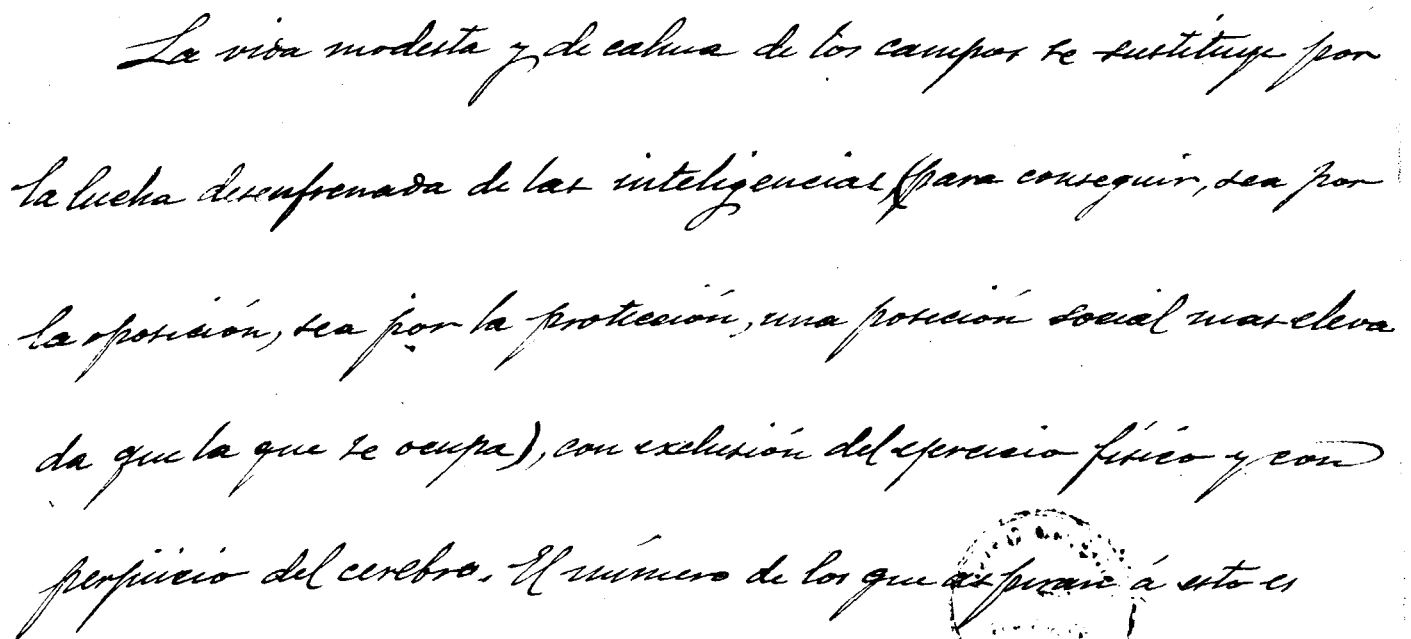 La vida modesta y de calma de los campos se sustituye por
la lucha desenfrenada de las inteligencias, (para conseguir, sea por
la oposición, sea por la protección, una posición social mas eleva
da que la que se ocupa), con exclusión del ejercicio físico y con
perjuicio del cerebro. El número de los que aspiran á esto es